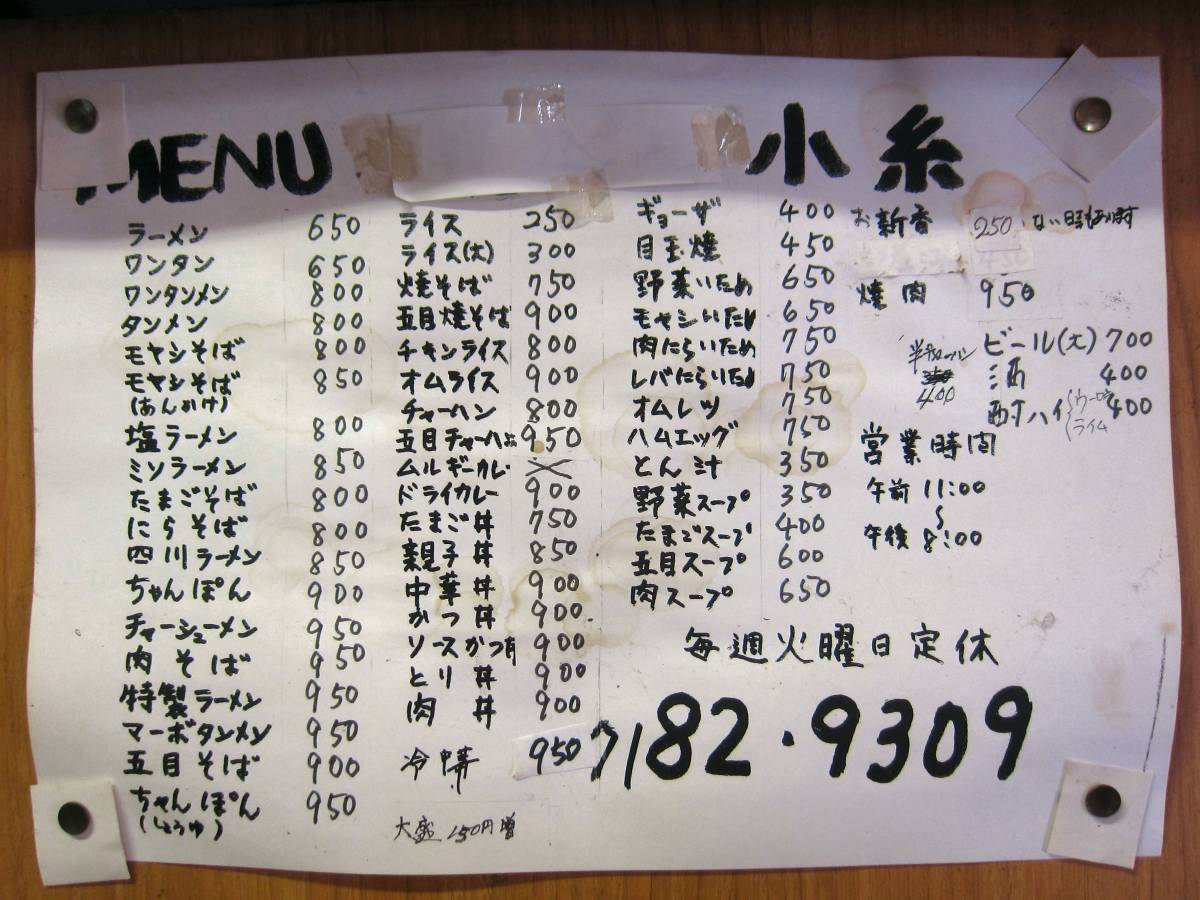 MENU
小糸
ラーメン 650
ワンタン 650
ワンタンメン 800
タンメン 800
モヤシそば 800
モヤシそば 850
(あんかけ)
塩ラーメン 800
ミソラーメン 850
たまごそば 800
にらそば 800
四川ラーメン 850
ちゃんぽん 900
チャーシューメン 950
肉そば 950
特製ラーメン 950
マーボタンメン 950
五目そば 900
ちゃんぽん 950
(しょうゆ)
ライス 250
ライス(大) 300
焼そば 750
五目焼そば 900
チキンライス 800
オムライス 900
チャーハン 800
五目チャーハン 950
ムルギーカレー
ドライカレー 900
たまご丼 750
親子丼 850
中華丼 900
かつ丼 900
ソースかつ丼 900
とり丼 900
肉丼 900
冷中華 950
大盛 150円増
ギョーザ 400
目玉焼 450
野菜いため 650
モヤシいため 650
肉にらいため 750
レバにらいため 750
オムレツ 750
ハムエッグ 750
とん汁 350
野菜スープ 350
たまごスープ 400
五目スープ 600
肉スープ 650
お新香 250 ない日もあります
焼肉 950
ビール(大) 700
酒 400
酎ハイ 400
ライム
400
営業時間
午前 11:00
〜
午後 8:00
毎週火曜日定休
7182・9309